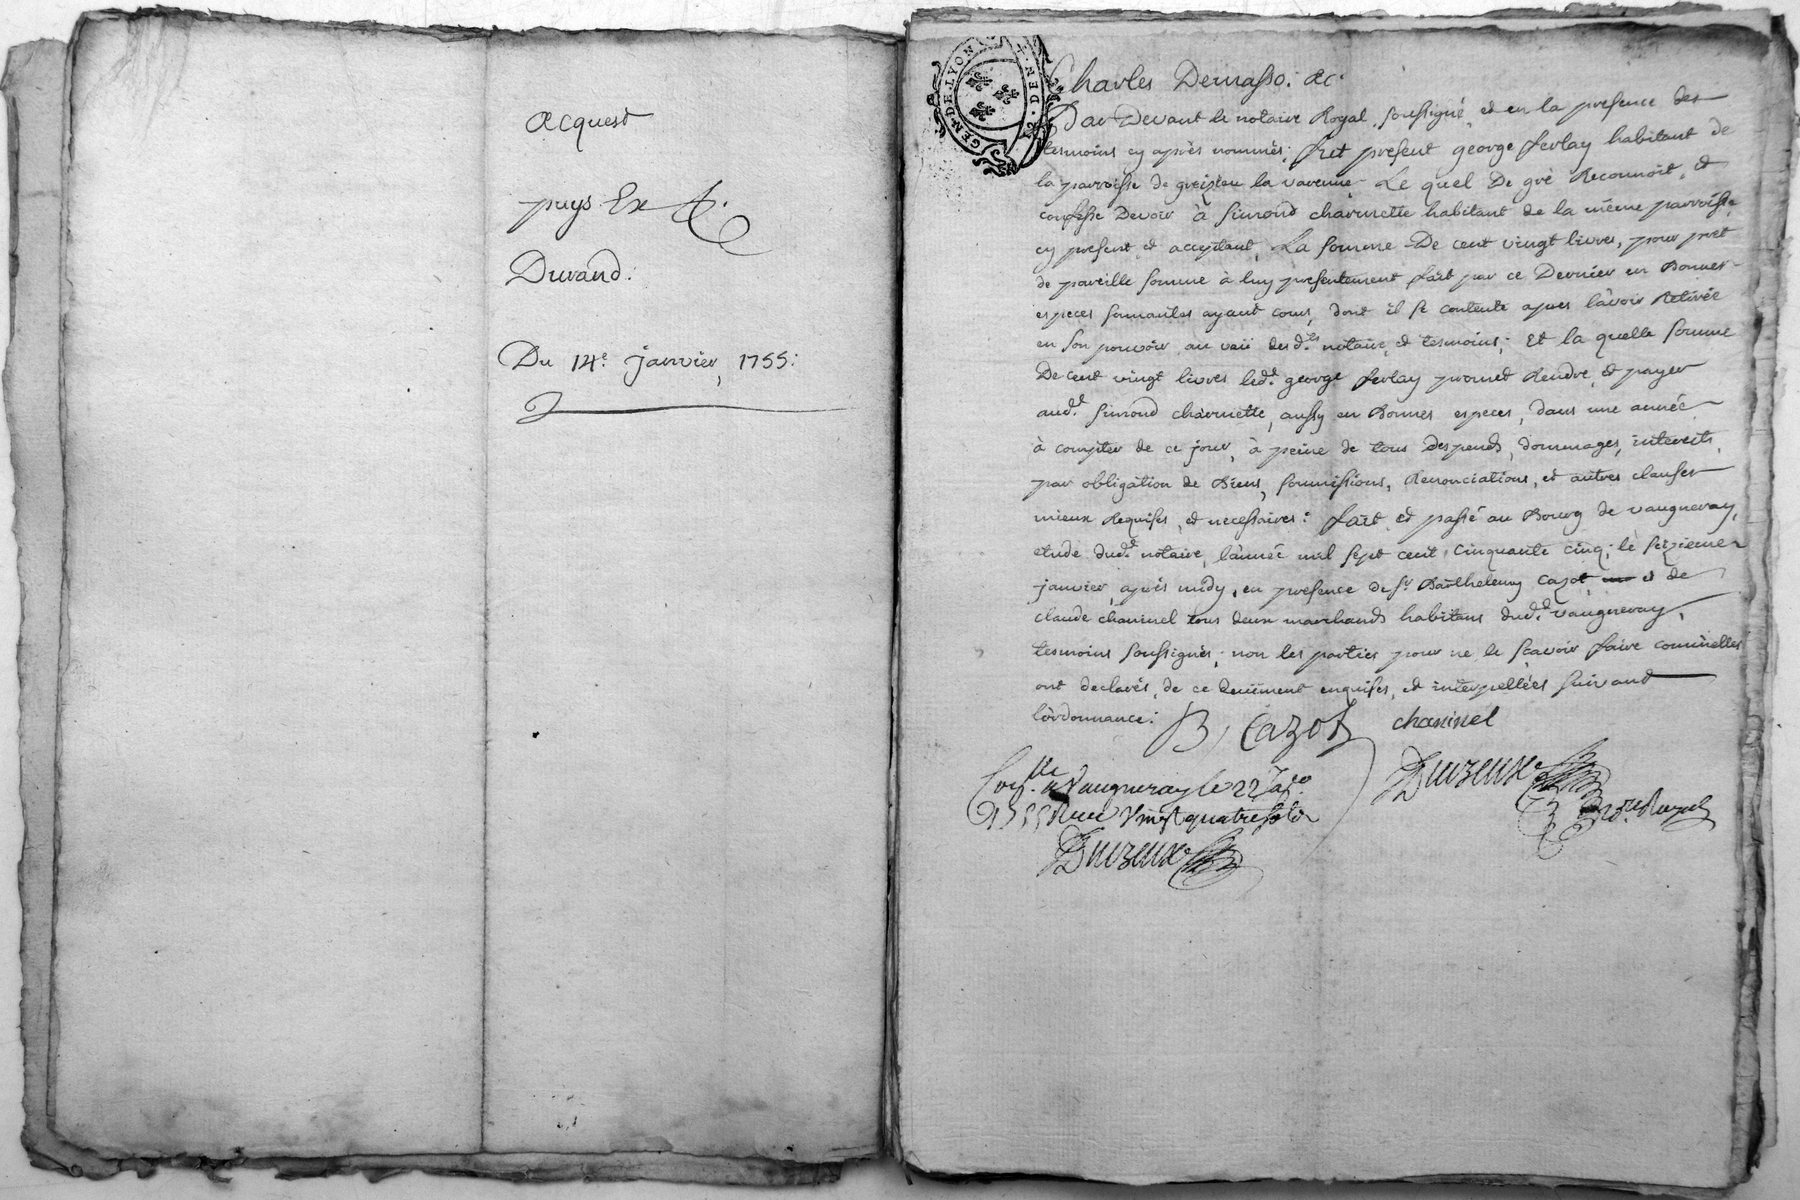 acquest
puys Ex
Durand.
Du 14e. janvier, 1755:
GEN. DE LYON
2 S. DEN.
Charles Demasso. &c.
Par Devant le notaire Royal soussigné, et en la presence des
tesmoins cy après nommés; fut present george ferlay habitant de
la parroisse de greizieu la varenne Le quel De gré Reconnoit, et
confesse Devoir à simond charmette habitant de la même parroisse,
cy present et acceptant, La somme De cent vingt livres, pour prêt
de pareille somme à luy presentement fait par ce Dernier en Bonnes
especes sonnantes ayant cours, dont il se contente apres l'avoir Retirée
en son pouvoir au veü desd.ts notaire, et tesmoins; Et la quelle somme
De cent vingt livres led.t george ferlay promet Rendre, et payer
aud.t simond charmette, aussy en Bonnes especes, dans une année
à compter de ce jour, à peine de tous despends, dommages, interests,
par obligation de Biens, soumissions, Renonciations, et autres clauses
mieux Requises, et necessaires: fait et passé au Bourg de vaugneray,
etude dud.t notaire, l'année mil sept cent cinquante cinq; le seizieme
janvier, après midy, en presence de sr. Barthelemy cazot et de
claude chaninel tous deux marchands habitans dud.t vaugneray,
tesmoins soussignés; non les parties pour ne le sçavoir faire comm'elles
ont declarés, de ce deuëment enquises, et interpellées suivant
l'ordonnance:
B Cazot chaninel
Con.lle a Vaugneray le 22 Jer.
1755 Receu Vingt quatre sols
Duizeux
Duizeux
nore. Royal